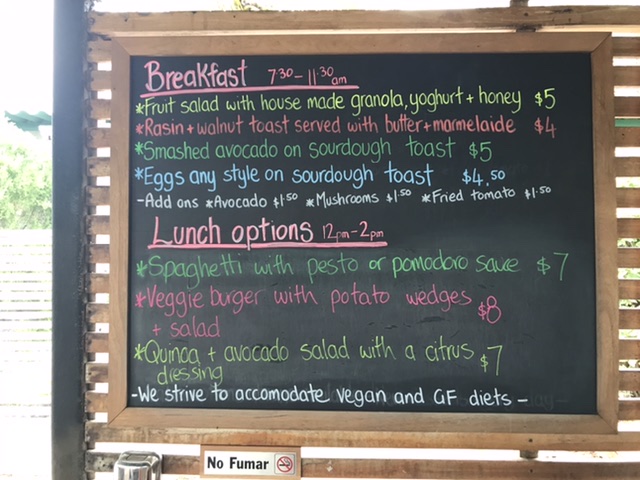 Breakfast 7:30 - 11:30 am
*Fruit salad with house made granola, yoghurt + honey $5
*Rasin + walnut toast served with butter + marmelaide $4
*Smashed avocado on sourdough toast $5
*Eggs any style on sourdough toast $4.50
- Add ons *Avocado $1.50 *Mushrooms $1.50 *Fried tomato $1.50
Lunch options 12pm - 2pm
*Spaghetti with pesto or pomodoro sauce $7
*Veggie burger with potato wedges $8
+ salad
*Quinoa + avocado salad with a citrus $7
dressing
- We strive to accomodate vegan and GF diets -
No Fumar